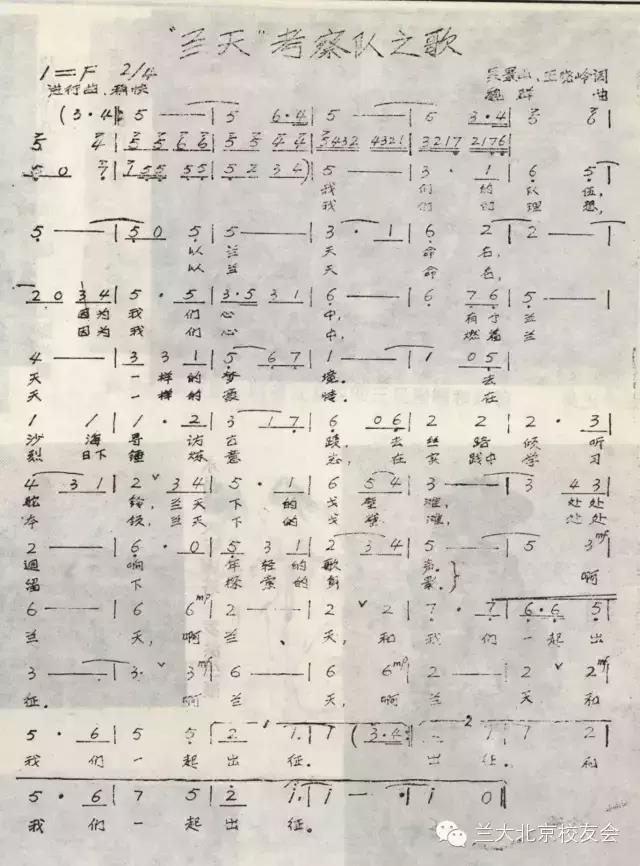 "兰天"考察队之歌
1=F 2/4
进行曲 稍快
吴景山、王晓岭词
魏 群 曲
(3·4 | 5 — | 5 6·4 | 5 — | 5 3·4 | 5 6 |
5 4 | 5 5 6 6 | 5 5 4 4 | 5432 4321 | 3217 2176 |
5 0 7 | 1 55 55 | 5 2 3 4) | 5 — | 3 · 1 | 6 5 |
我 们 的 队 伍,
我 们 的 理 想,
5 — | 5 0 5 | 5 — | 3 · 1 | 6 2 | 2 — |
以 兰 天 命 名,
以 兰 天 命 名,
2 0 3 4 | 5 · 5 | 3·5 3 1 | 6 — | 6 7 6 | 5 — |
因为 我 们 心 中, 有个 兰
因为 我 们 心 中, 燃着 兰
4 — | 3 3 1 | 5 6 7 | 1 — | 1 0 5 |
天 一 样 的 梦 境。 去
天 一 样 的 激 情。 在
1 1 | 1 · 2 | 3 1 7 | 6 0 6 | 2 2 | 2 · 3 |
沙 海 寻 访 古 迹, 去 丝 路 倾 听
烈 日下 锤 炼 意 志, 在 实 践中 学 习
4 3 1 | 2 ∨ 3 4 | 5 · 1 | 6 5 4 | 3 — | 3 4 3 |
驼 铃, 兰天 下 的 戈 壁 滩, 处处
本 领, 兰天 下 的 戈 壁 滩, 处处
2 — | 6 · 0 | 5 3 1 | 2 3 4 | 5 — | 5 3 mf |
迴 响 年 轻 的 歌 声。 啊
留 下 探 索 的 身 影。
6 — | 6 6 mp | 2 — | 2 ∨ 2 | 7 · 7 | 6·6 5 |
兰 天, 啊 兰 天, 和 我 们 一 起 出
3 — | 3 · 3 mf | 6 — | 6 6 mp | 2 — | 2 ∨ 2 mf |
征。 啊 兰 天, 啊 兰 天 和
5 · 6 | 5 5 | 2 1 | 1 (3·4 :| 2 1 | 1 2 |
我 们 一 起 出 征。 出 征。 和
5 · 6 | 7 5 | 2 i | i — · | i 0 |
我 们 一 起 出 征。
兰大北京校友会